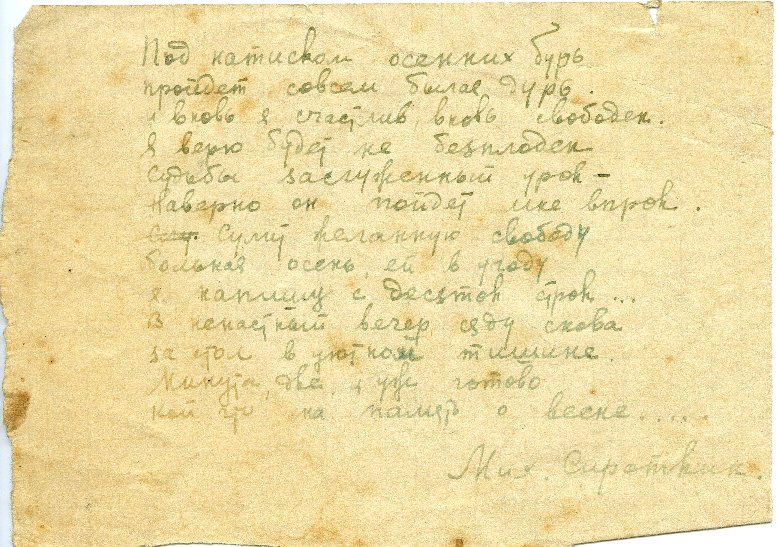 Под натиском осенних бурь
пройдет совсем былая дурь.
и вновь я счастлив, вновь свободен.
Я верю будет не безплоден
судьбы заслуженный урок –
Наверно он пойдет мне впрок.
Сулит желанную свободу
больная осень, ей в угоду
я напишу с десяток строк ...
В ненастный вечер сяду снова
за стол в уютной тишине.
Минута, две, и уж готово
кой что на память о весне.....
Мих. Сироткин.